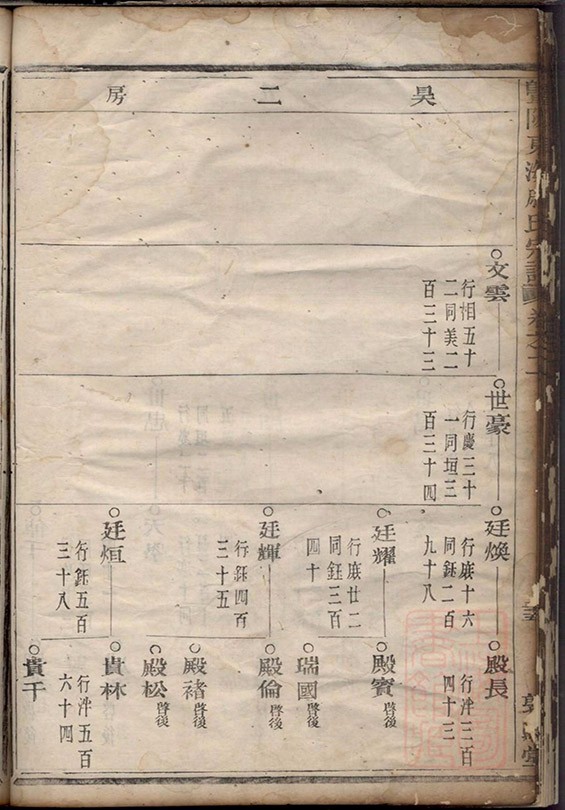 昊二房
文雲
行相五十
二同美二
百三十三
世豪
行慶三十
一同垣三
百三十四
廷煥
行底十六
同鈺二百
九十八
廷耀
行底廿二
同鈺三百
四十
廷輝
行鈺四百
三十五
廷烜
行鈺五百
三十八
殿長
行泮三百
四十三
殿賓
啓後
瑞國
啓後
殿倫
啓後
殿禇
啓後
殿松
啓後
貴林
行泮五百
六十四
貴千